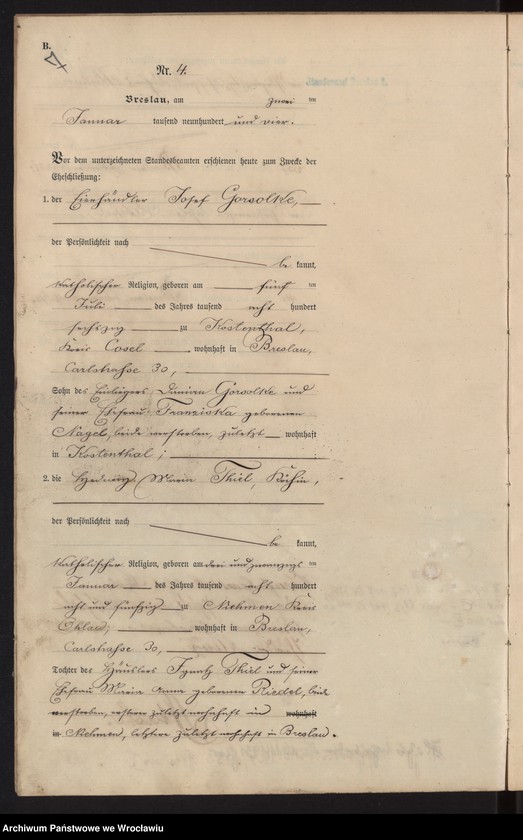 B.
Nr. 4.
Breslau, am zwei ten
Januar tausend neunhundert und vier.
Vor dem unterzeichneten Standesbeamten erschienen heute zum Zwecke der
Eheschließung:
1. der Eierhändler Josef Gorsolke,
der Persönlichkeit nach
be kannt,
katholischer Religion, geboren am fünf ten
Juli des Jahres tausend acht hundert
sechszig zu Kostenthal,
Kreis Cosel, wohnhaft in Breslau,
Carlstraße 30,
Sohn des Einliegers Damian Gorsolke und
seiner Ehefrau Franziska geborenen
Nagel, beide verstorben, zuletzt wohnhaft
in Kostenthal;
2. die Hedwig Maria Thiel, Köchin,
der Persönlichkeit nach
be kannt,
katholischer Religion, geboren am drei und zwanzigs ten
Januar des Jahres tausend acht hundert
acht und fünfzig zu Niehmen Kreis
Ohlau, wohnhaft in Breslau,
Carlstraße 30,
Tochter des Häuslers Ignatz Thiel und seiner
Ehefrau Maria Anna geborenen Riedel, beide
verstorben, ersterer zuletzt wohnhaft in wohnhaft
in Niehmen, letztere zuletzt wohnhaft in Breslau.
Archiwum Państwowe we Wrocławiu